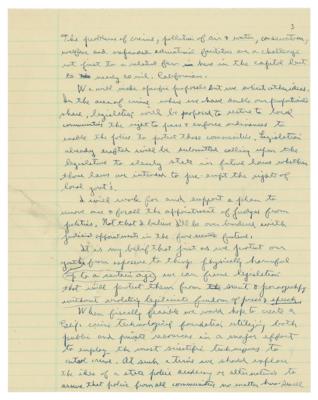 3
The problems of crime, pollution of air & water, conservation,
welfare and expanded educational facilities are a challenge
not just to a selected few in here in the capitol but
to every as nil. Californian.
We will make specific proposals but we solicit other ideas.
In the area of crime where we have double our proportionate
share, legislation will be proposed to restore to local
communities the right to pass & enforce ordinances to
enable the police to protect those communities. Legislation
already drafted will be submitted calling upon the
legislature to clearly state in future laws whether
those laws are intended to pre-empt the rights of
local gov't.
I will work for and support a plan to
move once & for all the appointment of judges from
politics. Not that I believe I'll be over burdened with
judicial appointments in the foreseeable future.
It is my belief that just as we protect our
youth from exposure to things physically harmful
(up to a certain age) we can frame legislation
that will protect them from smut & pornography
without violating legitimate freedom of press & speech.
When fiscally feasible we would hope to create a
Calif. crime technological foundation utilizing both
public and private resources in a major effort
to employ the most scientific techniques to
control crime. At such a time we should explore
the idea of a state police academy or alternatives to
assure that police from all communities no matter how small